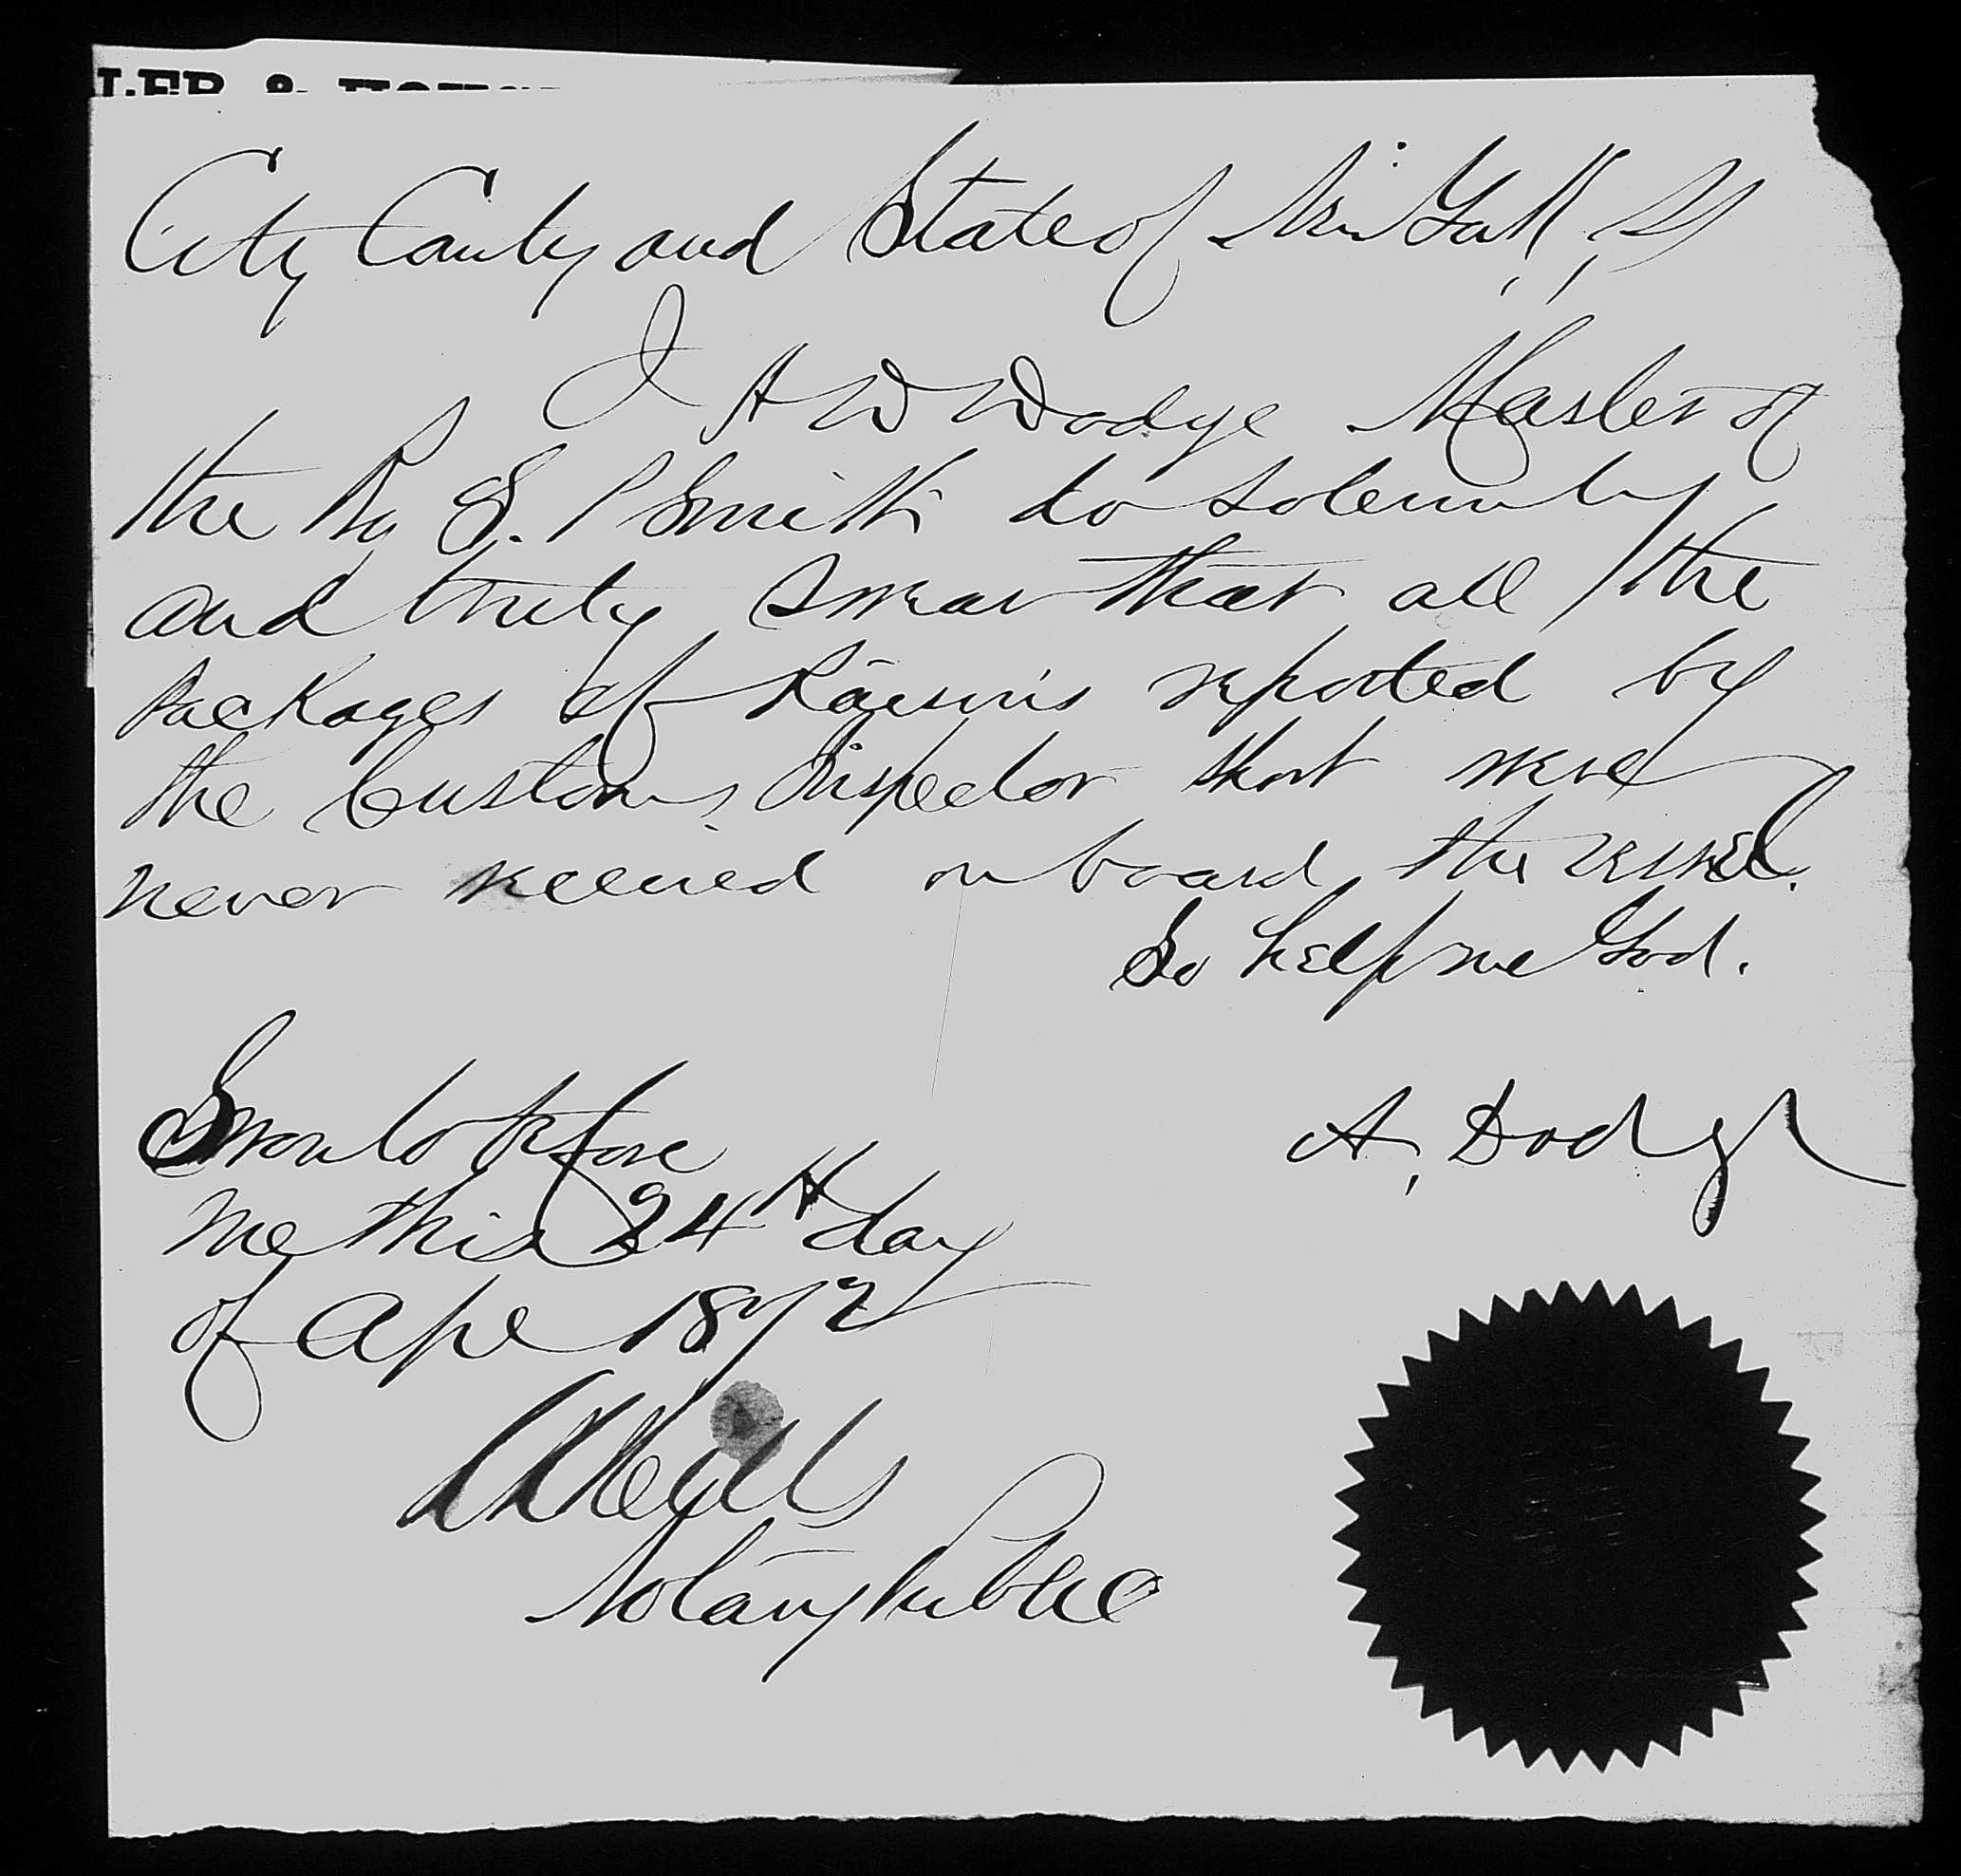 City County and State of New York, SS
I A W Dodge Master of
the Bg S. P Smith do solemnly
and truly Swear that all the
packages of Raisins reported by
the Customs Inspector short were
never received on board the vessel.
So help me God.
Sworn to before
me this 24th day
of Apl 1872
A. Dodge
Notary Public